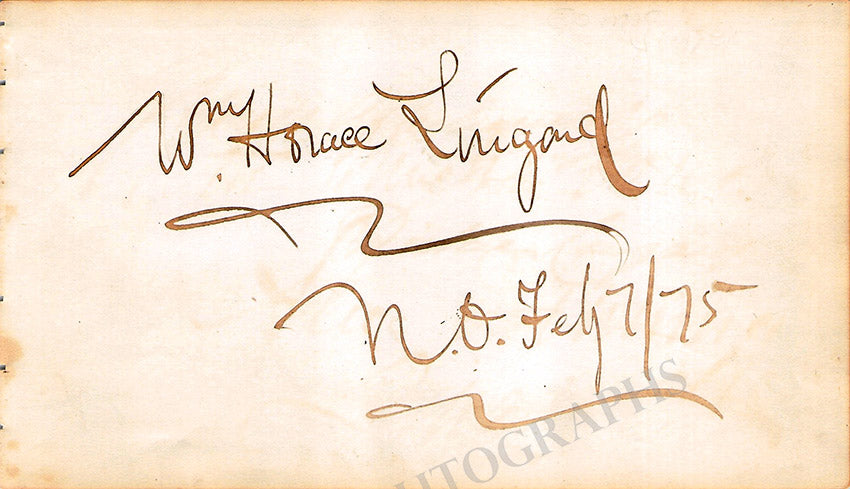 Wm. Horace Lingard
N.O. Feby 7/75
AUTOGRAPHS